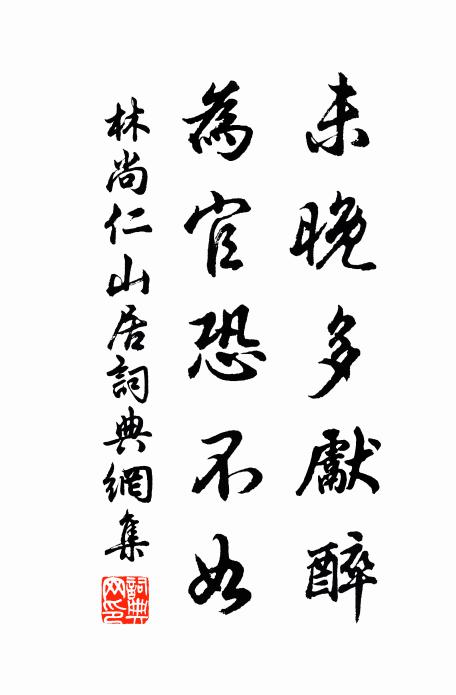 未晚多獻醉
為官恐不如
林尚仁山居詞典網集
詞典網印